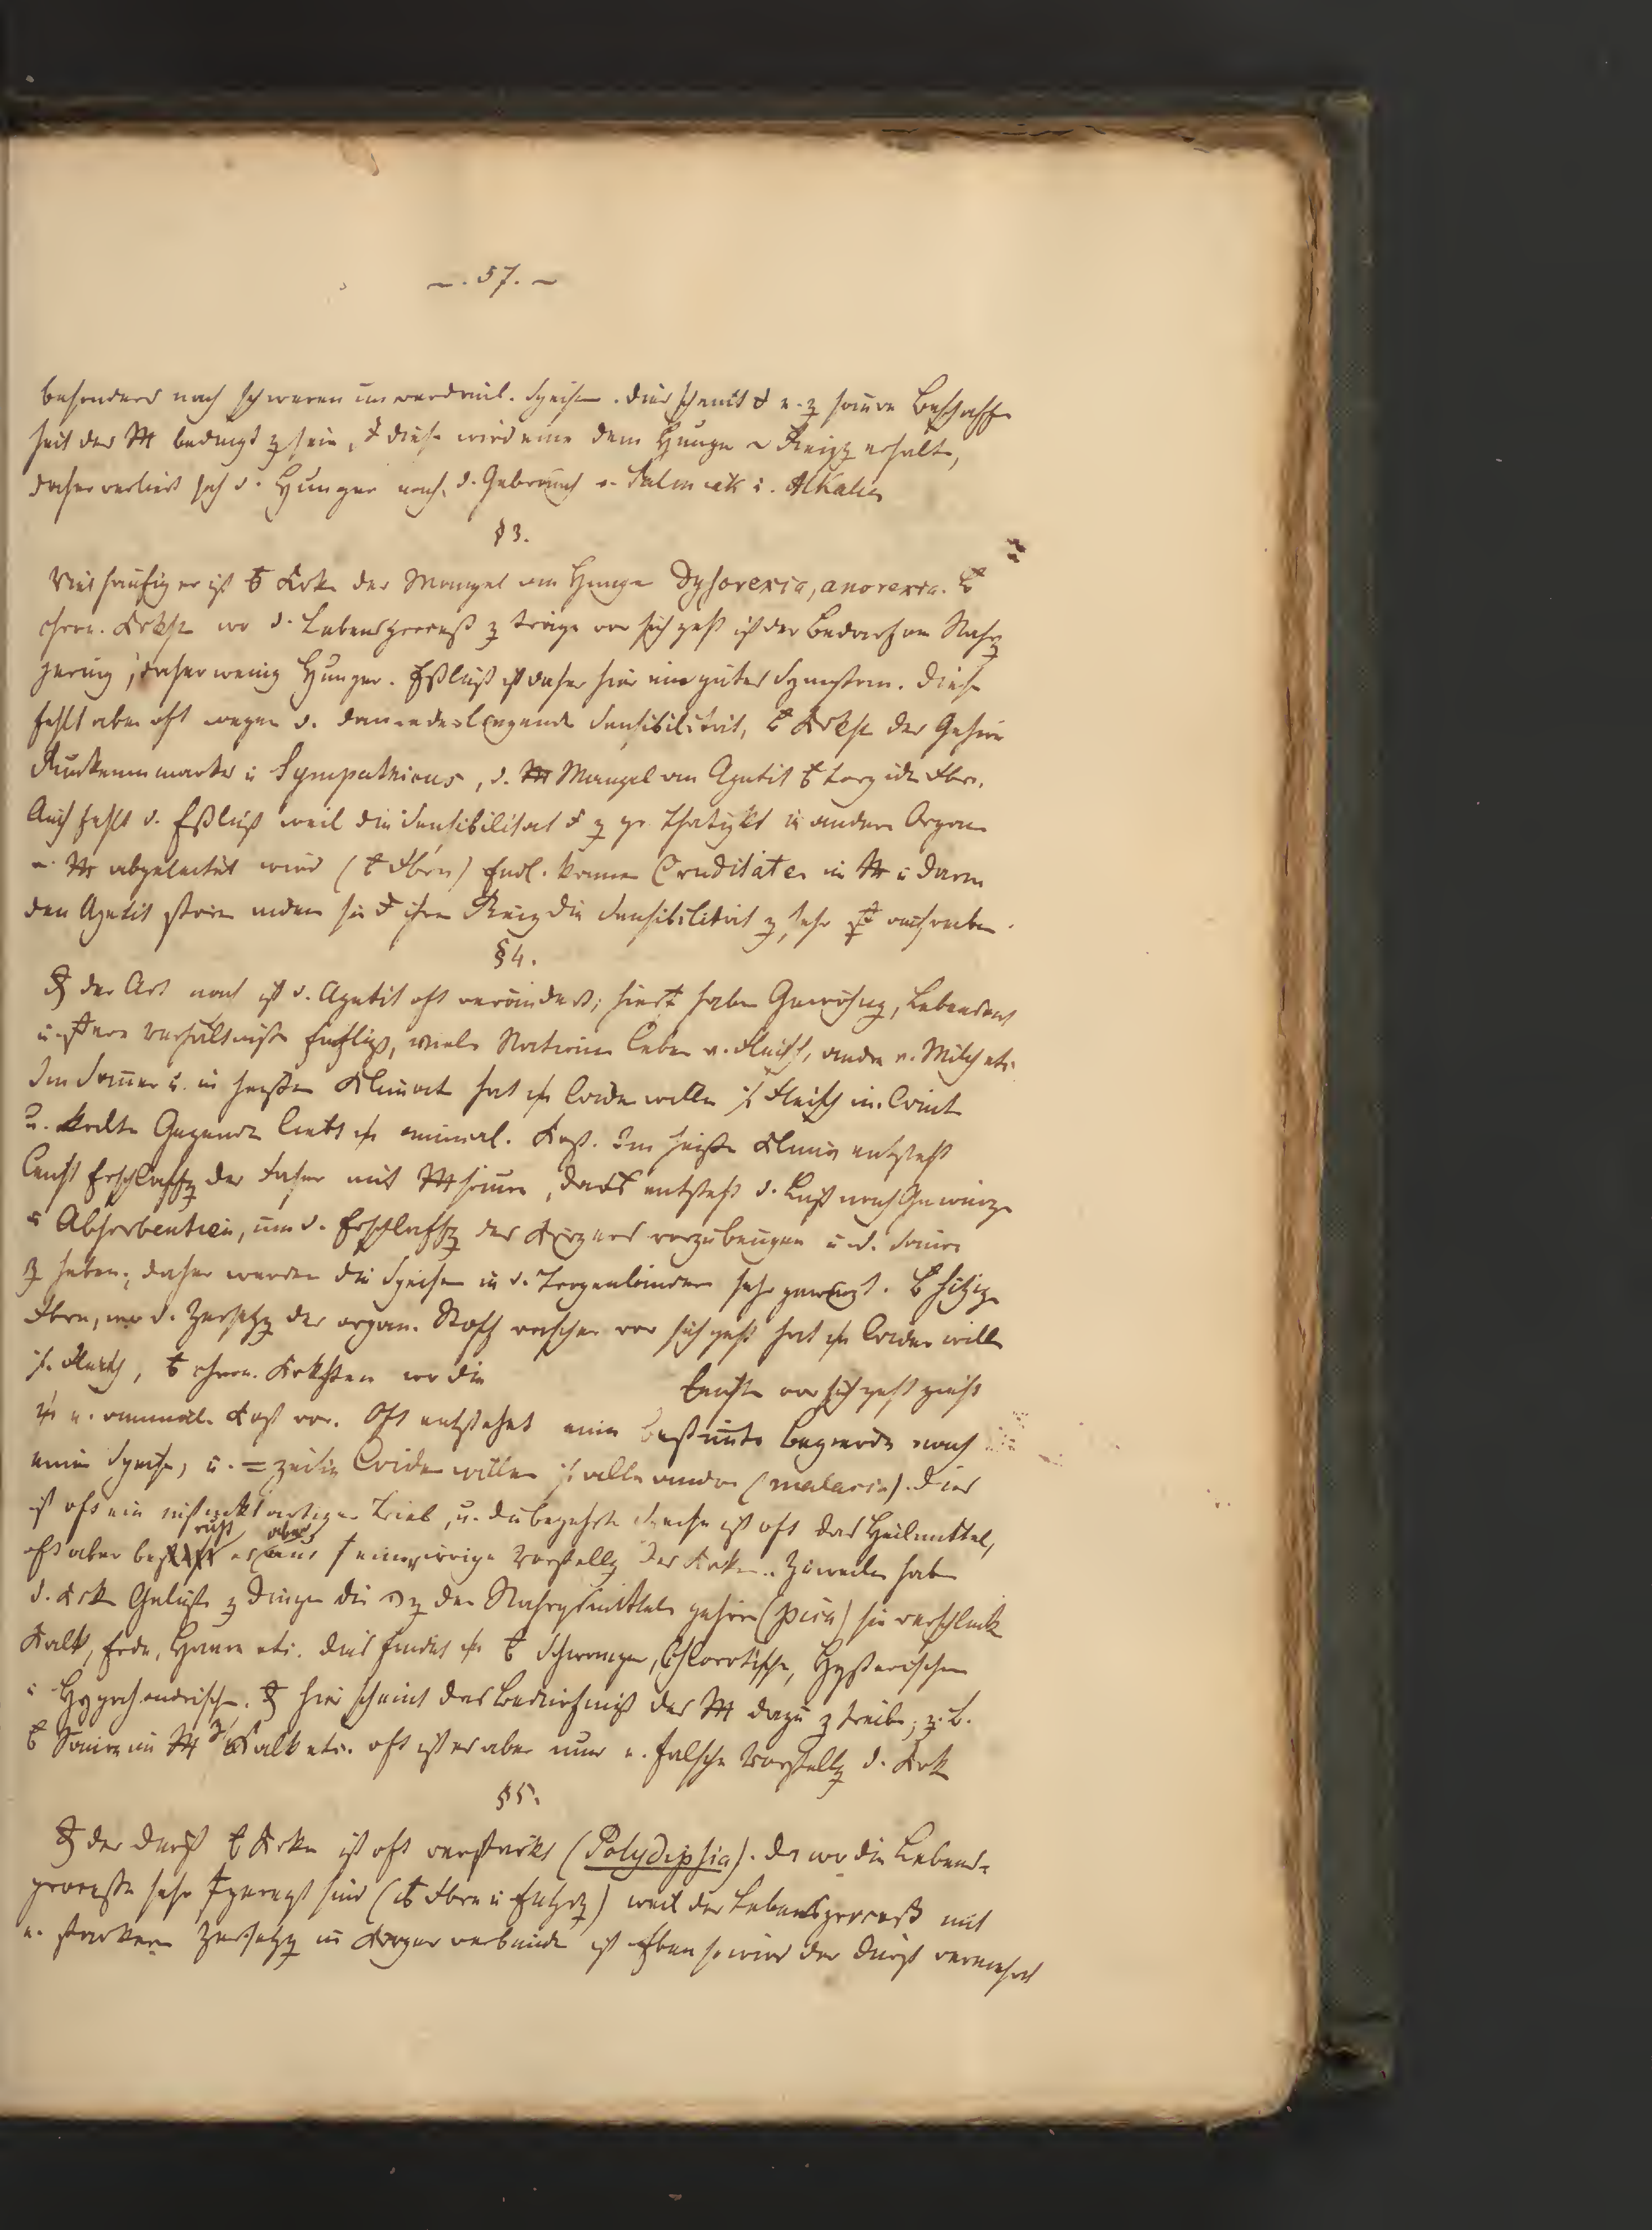 –. 57. –
besonders nach schweren unverdaul. Speisen. Dies scheint e. z saure Beschaffen
heit der M bedingt z sein, diese wird eine dem Hunger Reiz erhalte,
daher verliert sich d. Hunger nach d. Gebrauch v. Salmiak u. Alkalien
§ 3.
Viel häufiger ist Krke der Mangel am Hunger Dysorexia, anorexia.
chron. Krkht wo d. Lebensproceß z träge vor sich geht ist der Bedarf an Nahrg
gering, daher wenig Hunger. Eßlust ist daher hier ein gutes Symptom. Diese
fehlt aber oft wegen d. daniederliegende Sensibilität, Krkht der Gehirn
Rückenmarks u Sympathicus, d. Mangel an Apetit torpide Fbr.
Auch fehlt d. Eßlust weil die Sensibilität z gr. Thätigkt in andern Organ
M abgeleitet wird ( Fbrn) Endl. können Cruditäten in M u Darm
den Apetit stören indem sie ihren Reiz die Sensibilität z sehr
§ 4.
der Art nach ist d. Apetit oft verändert; hier haben Gewöhng, Lebensart
u. Verhältniße Einfluß, viele Nationen leben v. Fleisch, andre v. Milch etc.
Im Somer u. in heißen Klimat hat Widerwille Fleisch im Wint
u. kalte Gegenden liebt animal. Kost. Im heißen Klima entsteht
leicht Erschlaffg der Faser mit M säure, entsteht d. Lust nach Gewürze
u Absorbentien, um d. Erschlaffg des Körpers vorzubeugen u d. Säure
z heben; daher werden die Speisen in d. Tropenländern sehr gewürzt. hitzige
Fbrn, wo d. Zersetzg der organ. Stoffe rascher vor sich geht hat Widerwille
Fleisch, chron. Krkhten wo die leichter vor sich geht zieht
animal. Kost vor. Oft entsteht eine bestimte Begierde nach
einer Speise, u. = zeitig Widerwillen alle andre (malacia). Dies
ist oft ein instinktartiger Trieb, u. die begehrte Speise ist oft das Heilmittel,
ruht aber
oft aber es aus eine irrige Vorstellg der Krken. Zuweilen haben
d. Krk Gelüste z Dingen die z den Nahrgsmitteln gehören (pica) sie verschlucke
Kalk, Erde, Haare etc. Dies findet Schwangern, Chlorotische, Hysterischen
u Hypochondrischen. hier scheint das Bedürfniß des M dazu z treiben; z. B.
Säure im M Kalk etc. oft ist es aber nur e. falsche Vorstellg d. Krk
§ 5.
der Durst Krken ist oft verstärkt (Polydipsia). da wo die Lebens=
processe sehr geregt sind ( Fbrn u Entzdg) weil der Lebensproceß mit
e. starken Zersetzg im Körper verbunden ist Eben so wird der Durst vermehrt